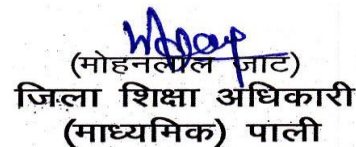 (मोहनलाल जाट)
जिला शिक्षा अधिकारी
(माध्यमिक) पाली